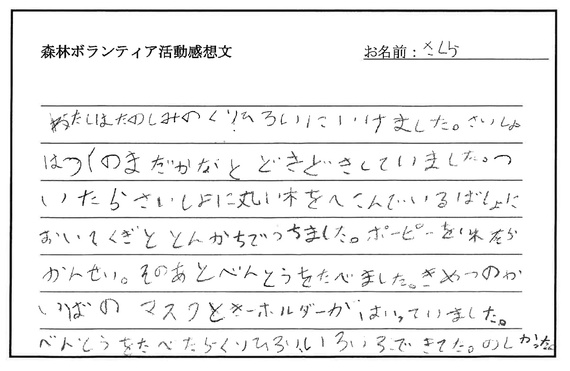 森林ボランティア活動感想文
お名前：さくら
わたしはたのしみのくりひろいにいけました。さいしょ
はつくのまだかなとどきどきしていました。つ
いたらさいしょに丸い木をへこんでいるばしょに
おいてくぎととんかちでうちました。ポーピーを
かんせい。そのあとべんとうをたべました。きめつのか
いばのマスクとキーホルダーがはいっていました。
べんとうをたべたらくりひろい。いろいろできてた。のしかった。